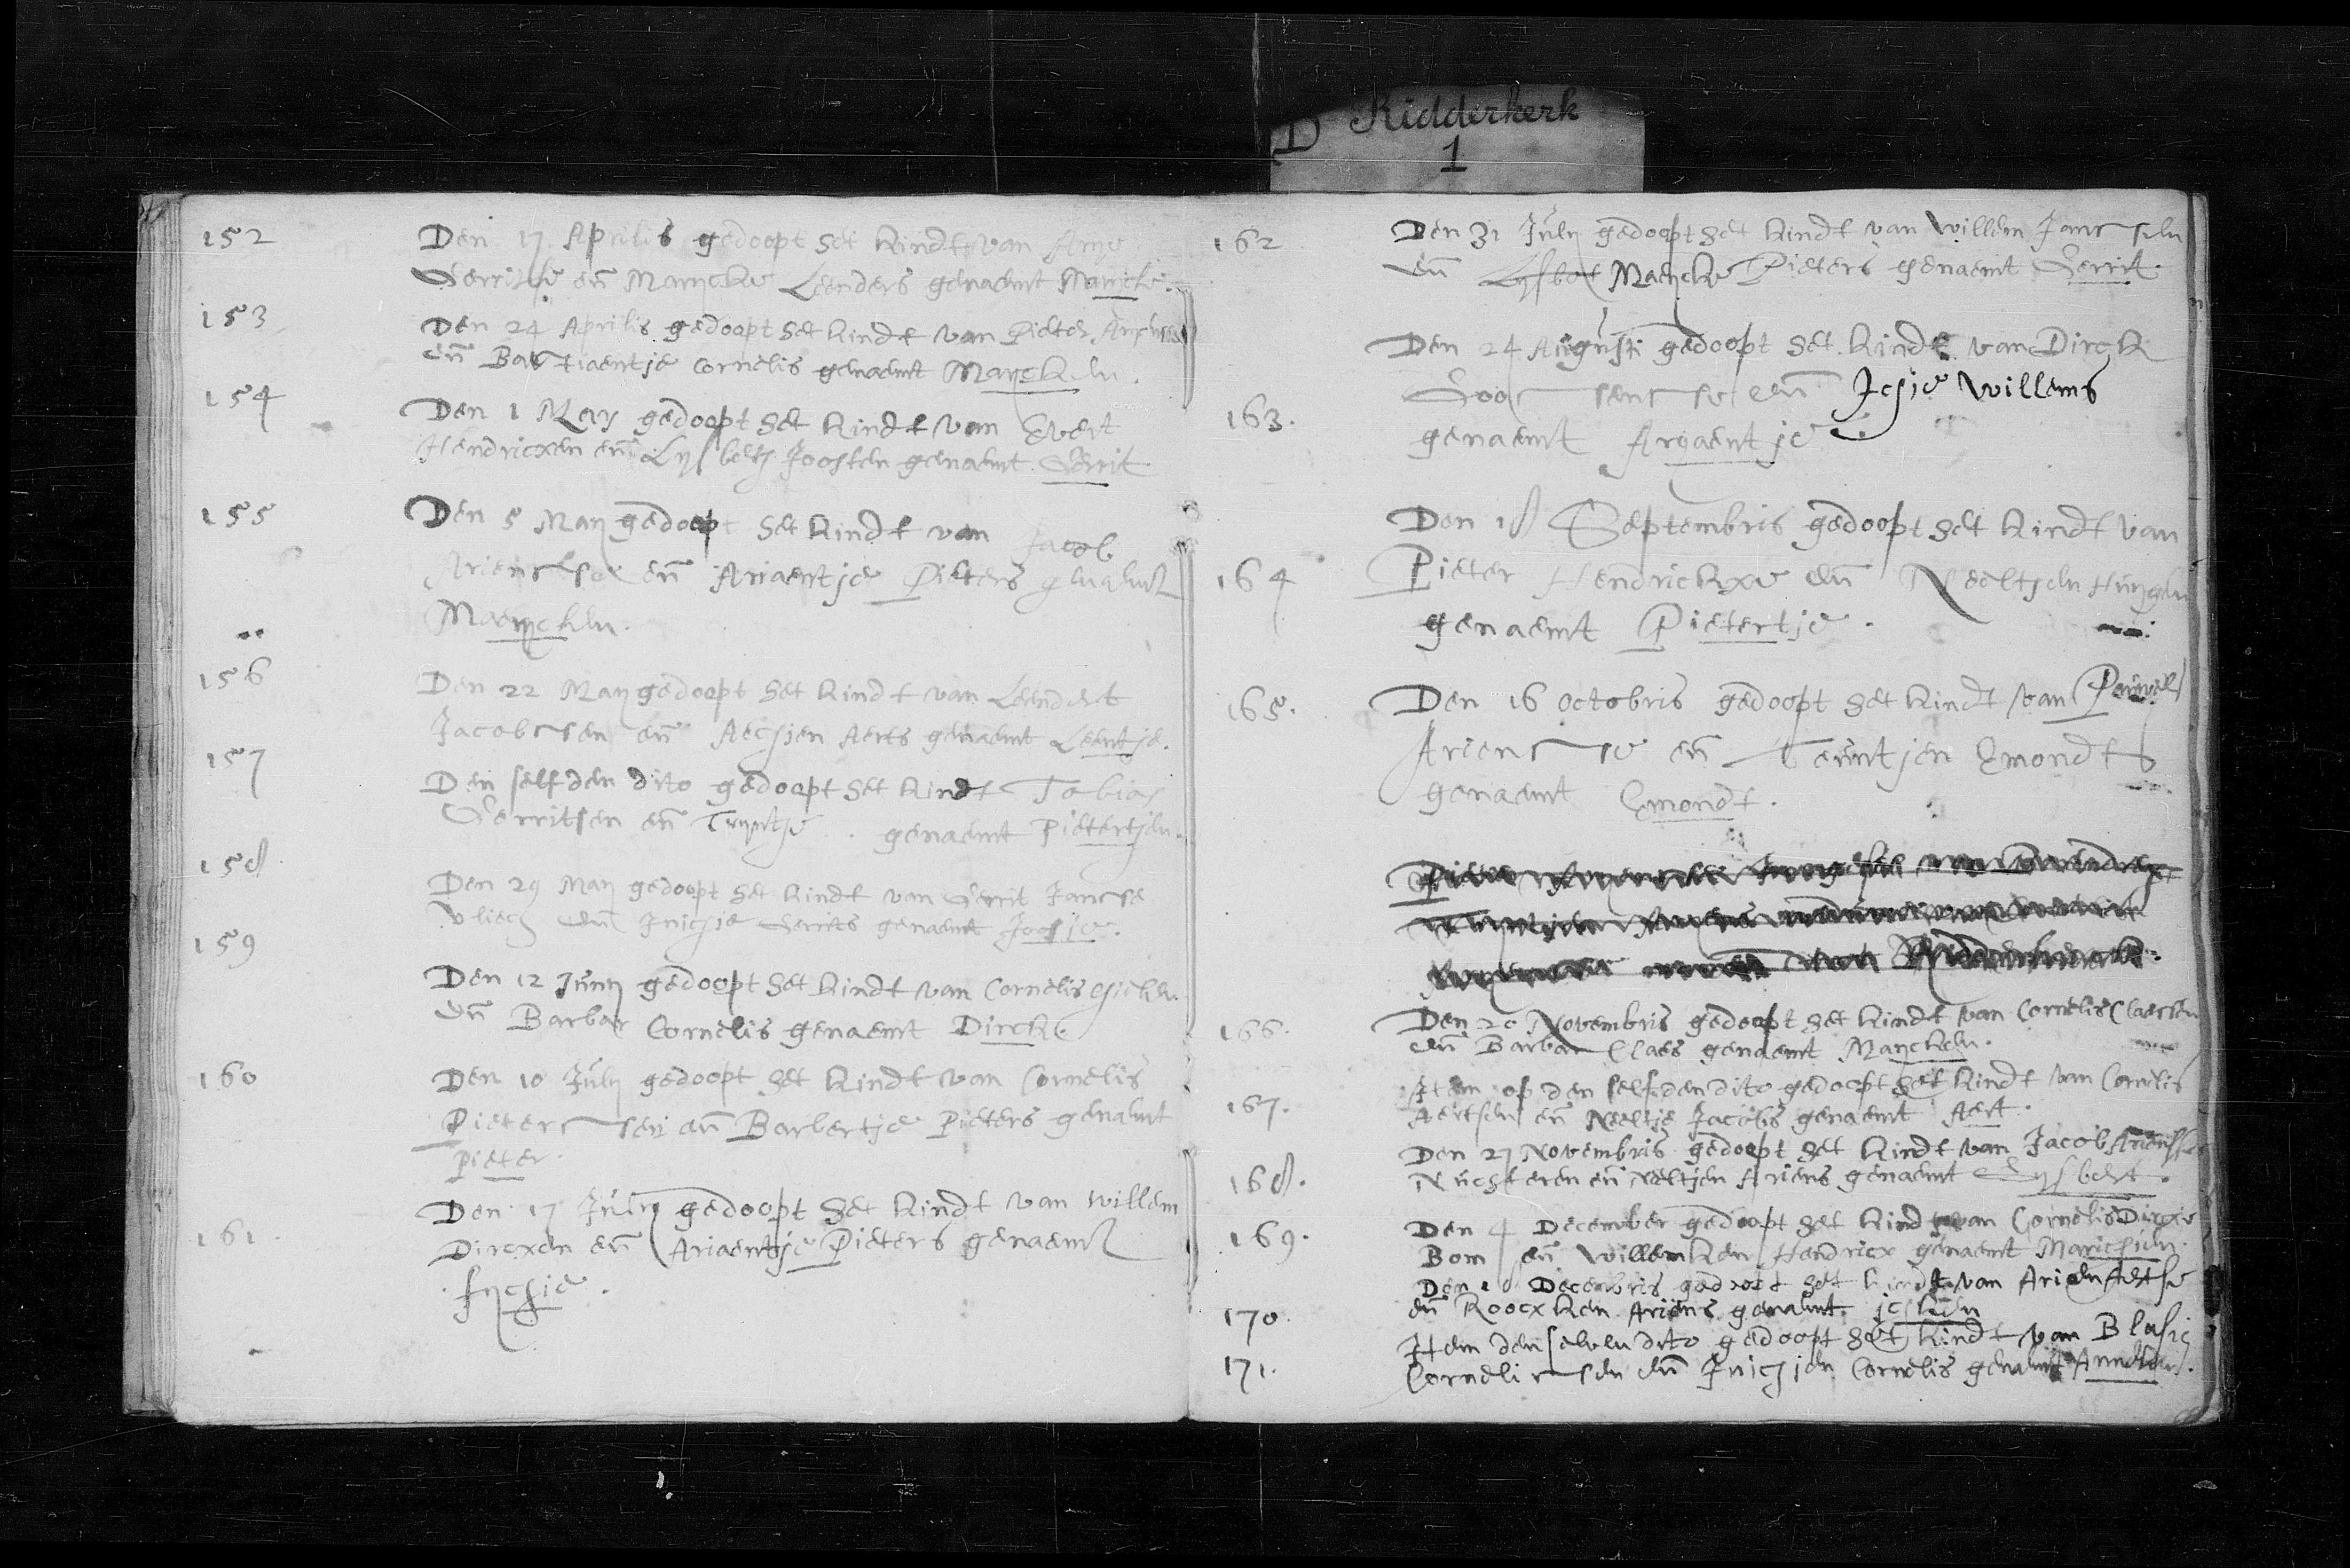 D Ridderkerk
1
152
Den 17 Aprilis gedoopt het kindt van Arije
Gerritse en̄ Marycke Leenders genaemt Marycke.
153
Den 24 Aprilis gedoopt het kindt van Pieter
en̄ Bastiaentje Cornelis genaemt Marycken.
154
Den 1 May gedoopt het kindt van Evert
Hendricxen en̄ Lysbeth Joosten genaemt Gerrit
155
Den 5 May gedoopt het kindt van Jacob
Ariensse en̄ Ariaentje Pieters genaemt
Maeycken.
156
Den 22 May gedoopt het kindt van Leendert
Jacobsen en̄ Aechjen Aerts genaemt Leentje.
157
Den selfden dito gedoopt het kindt Tobias
Gerritsen en̄ Tryntje .. genaemt Pietertjen.
158.
Den 29 May gedoopt het kindt van Gerrit Janse
Vliech en̄ Inichje Gerrits genaemt Joosje.
159
Den 12 Juny gedoopt het kindt van Cornelis
en̄ Barbar Cornelis genaemt Dirck
160
Den 10 July gedoopt het kindt van Cornelis
Pietersen en̄ Barbertje Pieters genaemt
Pieter.
161.
Den 17 July gedoopt het kindt van Willem
Dircxen en̄ Ariaentje Pieters genaemt
Fychje.
162
Den 31 July gedoopt het kindt van Willem Janssen
en̄ Lysbet Maeycke Pieters genaemt Gerrit.
163.
Den 24 Augusti gedoopt het kindt van Dirck
Goossensse en̄ Ichje Willems
genaemt Aryaentje.
164
Den 18 Septembris gedoopt het kindt van
Pieter Hendrickxe en̄ Neeltjen Huygen
genaemt Pietertje.
165.
Den 16 Octobris gedoopt het kindt van Pouwels
Ariensse en̄ Teuntjen Emondts
genaemt Emondt.
166.
Den 20 Novembris gedoopt het kindt van Cornelis Claessen
en̄ Barbar Claes genaemt Maycken.
167.
Item op den selfden dito gedoopt het kindt van Cornelis
Aertsen en̄ Neeltje Jacobs genaemt Aert.
168.
Den 27 Novembris gedoopt het kindt van Jacob Ariensse
Nuchteren en̄ Neltjen Ariens genaemt Gysbert.
169.
Den 4 December gedoopt het kindt van Cornelis Dircxe
Bom en̄ Willemken Hendricx genaemt Marichjen.
170.
Den 18 Decembris gedoopt het kindt van Arien Aertse
en̄ Roocxken Ariens genaemt
171.
Item den selven dito gedoopt het kindt van Blasis
Cornelissen en̄ Inichjen Cornelis genaemt Anneken.